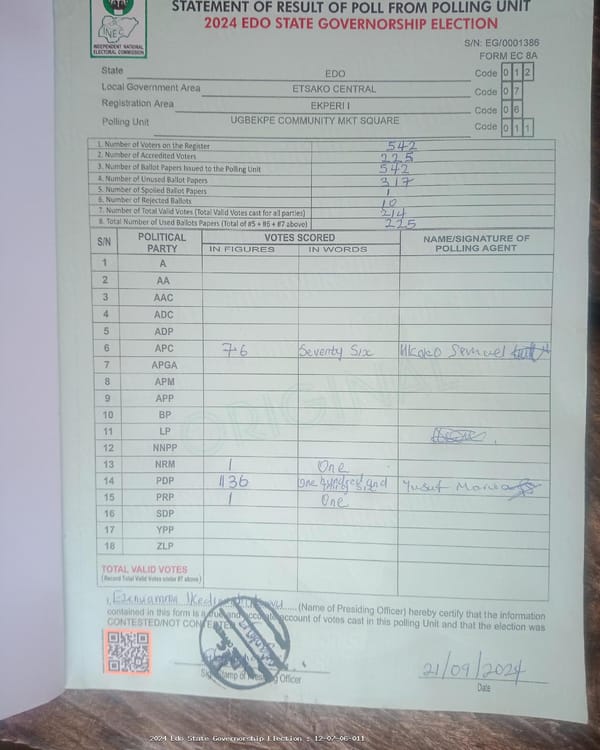 INEC
INDEPENDENT NATIONAL
ELECTORAL COMMISSION
STATEMENT OF RESULT OF POLL FROM POLLING UNIT
2024 EDO STATE GOVERNORSHIP ELECTION
S/N: EG/0001386
FORM EC 8A
State EDO Code 0 1 2
Local Government Area ETSAKO CENTRAL Code 0 7
Registration Area EKPERI I Code 0 6
Polling Unit UGBEKPE COMMUNITY MKT SQUARE Code 0 1 1
1. Number of Voters on the Register 542
2. Number of Accredited Voters 225
3. Number of Ballot Papers Issued to the Polling Unit 542
4. Number of Unused Ballot Papers 317
5. Number of Spoiled Ballot Papers 1
6. Number of Rejected Ballots 10
7. Number of Total Valid Votes (Total Valid Votes cast for all parties) 214
8. Total Number of Used Ballots Papers (Total of #5 + #6 + #7 above) 225
S/N POLITICAL PARTY VOTES SCORED NAME/SIGNATURE OF POLLING AGENT
IN FIGURES IN WORDS
1 A
2 AA
3 AAC
4 ADC
5 ADP
6 APC 76 Seventy Six Semuel
7 APGA
8 APM
9 APP
10 BP
11 LP
12 NNPP
13 NRM 1 One
14 PDP 136 One hundred and thirty six Yusuf
15 PRP 1 One
16 SDP
17 YPP
18 ZLP
ORIGINAL
TOTAL VALID VOTES
(Record Total Valid Votes under #7 above)
I, (Name of Presiding Officer) hereby certify that the information
contained in this form is a true and accurate account of votes cast in this polling Unit and that the election was
CONTESTED/NOT CONTESTED
21/09/2024
Sign/Stamp of Presiding Officer
Date
2024 Edo State Governorship Election : 12-07-06-011